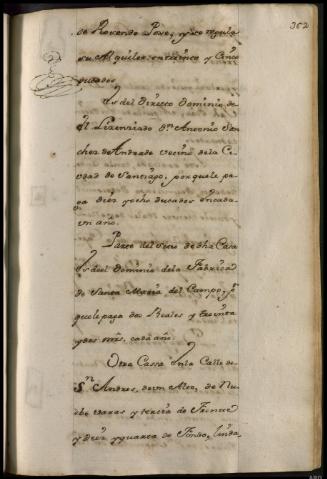 362
de Rosendo Pose, y se regula
su Alquiler en treinta y Cinco
ducados
Es del Directo Dominio de
el Lizenziado Dn. Antonio San
chez de Andrade vecino de la Ci
vdad de Santiago, por que le pa
ga diez y ocho ducados en cada
vn año.
Parte del sitio de dha Casa
Es de el Dominio de la Fabrica
de Santa Maria del Campo, y
que le paga dos Reales y treinta
y dos mrs. cada año.
Otra Cassa En la Calle de
Sn. Andres, de vn Alto, de Nu
be varas y tercia de Frente
y diez y quarta de Fondo, linda